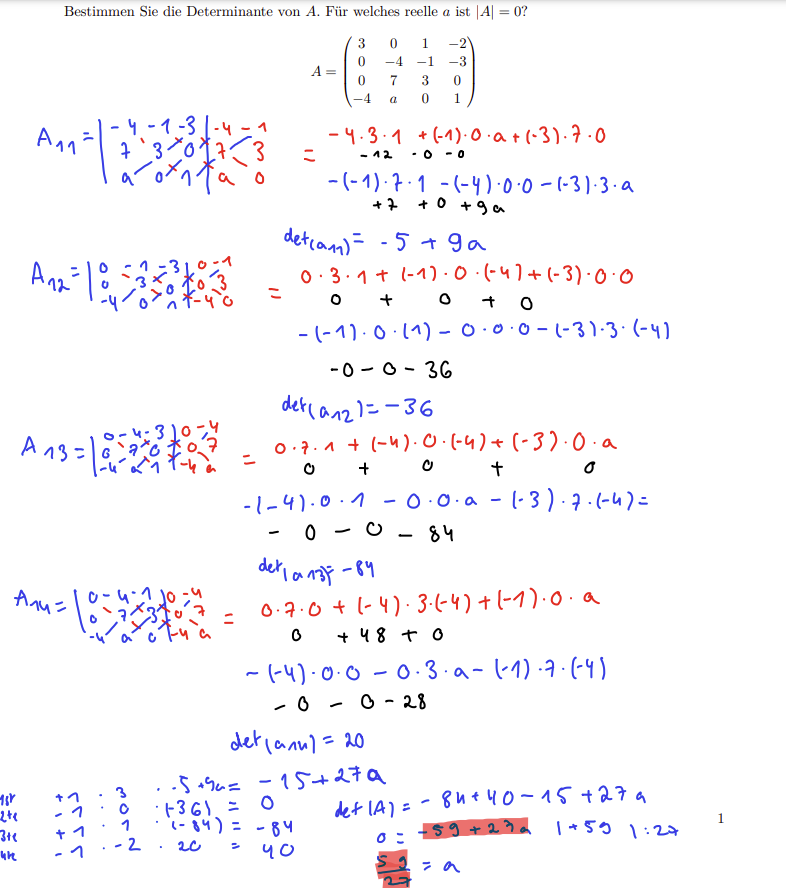 Bestimmen Sie die Determinante von A. Für welches reelle a ist |A| = 0?
3 0 1 −2
0 −4 −1 −3
A =
0 7 3 0
−4 a 0 1
A11 = | -4 -1 -3 | -4 -1
7 3 0 | 7 3
a 0 1 | a 0
= -4·3·1 +(-1)·0·a+(-3)·7·0
-12 -0 -0
-(-1)·7·1 -(-4)·0·0 -(-3)·3·a
+7 +0 +9a
det(a11) = -5 + 9a
A12 = | 0 -1 -3 | 0 -1
0 3 0 | 0 3
-4 0 1 | -4 0
= 0·3·1 + (-1)·0·(-4)+(-3)·0·0
0 + 0 + 0
-(-1)·0·(1) - 0·0·0 -(-3)·3·(-4)
-0 - 0 - 36
det(a12) = -36
A13 = | 0 -4 -3 | 0 -4
0 7 0 | 0 7
-4 a 1 | -4 a
= 0·7·1 + (-4)·0·(-4)+(-3)·0·a
0 + 0 + 0
-(-4)·0·1 - 0·0·a - (-3)·7·(-4) =
- 0 - 0 - 84
det(a13) = -84
A14 = | 0 -4 -1 | 0 -4
0 7 3 | 0 7
-4 a 0 | -4 a
= 0·7·0 + (-4)·3·(-4)+(-1)·0·a
0 +48 + 0
-(-4)·0·0 - 0·3·a - (-1)·7·(-4)
- 0 - 0 - 28
det(a14) = 20
1str +1 · 3 · -5+9a = -15+27a
2te -1 · 0 · (-36) = 0
3te +1 · 1 · (-84) = -84
4te -1 · -2 · 20 = 40
det(A) = -84+40-15+27a
0 = -59+27a |+59 |:27
59/27 = a
1